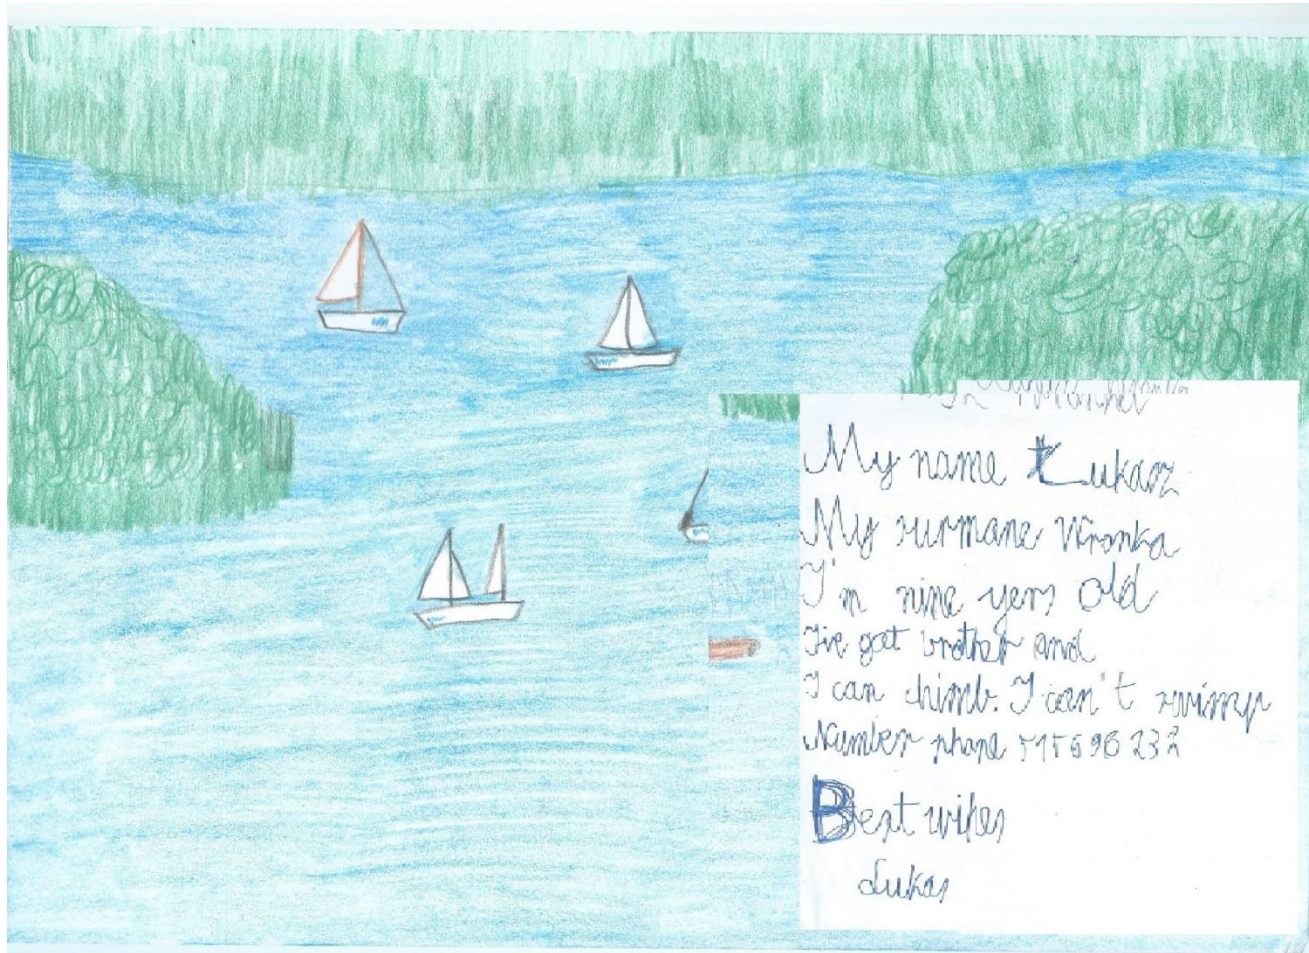 My name Łukasz
My surmane Wronka
I'm nine yers old
I've got brother and
I can chimb. I can't swimp
Number phone 515696232
Best wihes
Lukas